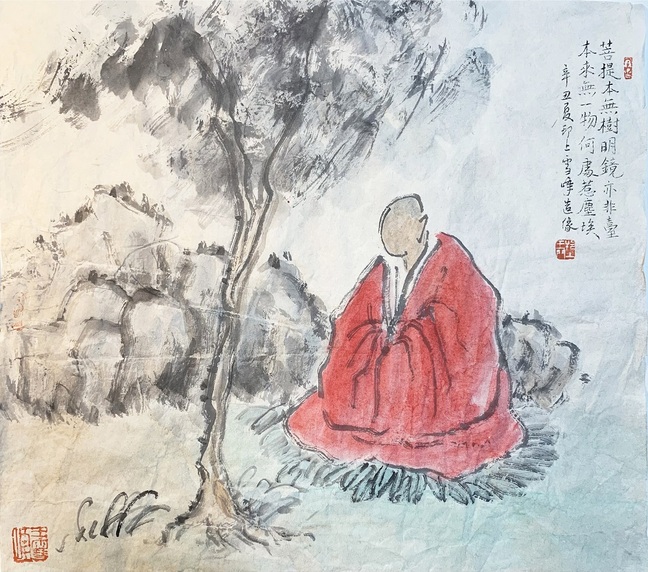 菩提本無樹明鏡亦非臺
本來無一物何處惹塵埃
辛丑夏上雪峰造像
王雪峰